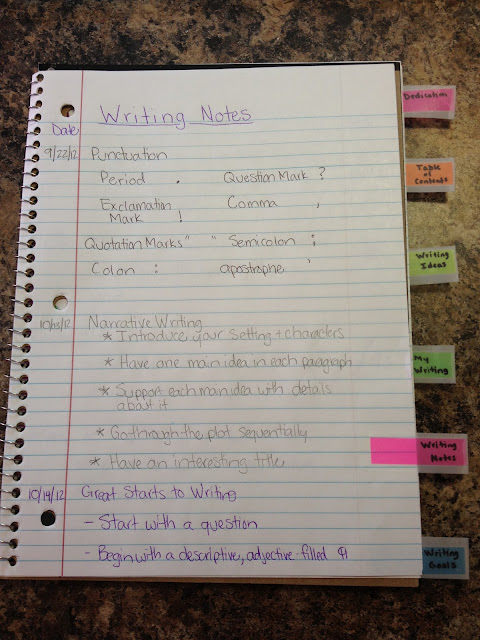 Writing Notes
Date
9/22/12 Punctuation
Period . Question Mark ?
Exclamation Comma ,
Mark !
Quotation Marks " " Semicolon ;
Colon : apostrophe '
10/05/12 Narrative Writing
* Introduce your setting + characters
* Have one main idea in each paragraph
* Support each main idea with details
about it
* Go through the plot sequentially
* Have an interesting title
10/19/12 Great Starts to Writing
- Start with a question
- Begin with a descriptive, adjective-filled
Dedication
Table
of
Contents
Writing
Ideas
My
Writing
Writing
Notes
Writing
Goals